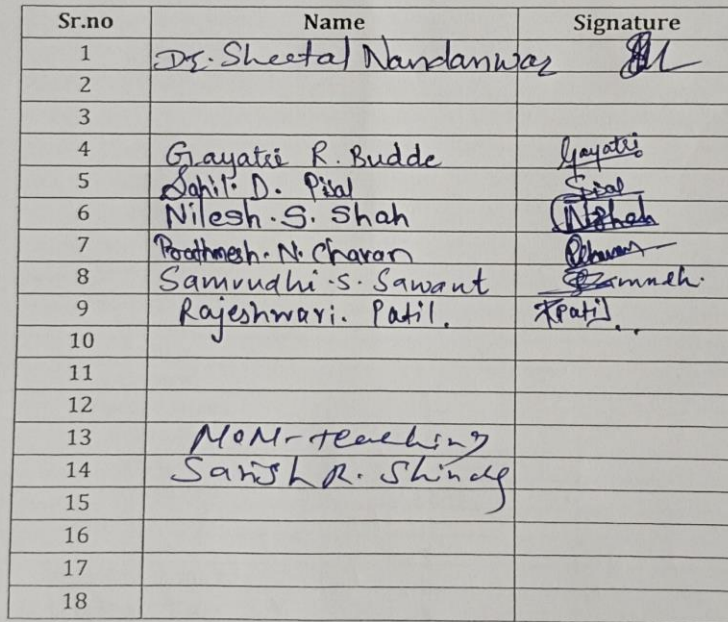 Sr.no Name Signature
1 Dr. Sheetal Nandanwar
2
3
4 Gayatri R. Budde Gayatri
5 Sahil. D. Pisal Spisal
6 Nilesh. S. Shah NShah
7 Prathmesh. N. Chavan
8 Samrudhi. S. Sawant
9 Rajeshwari. Patil. RPatil
10
11
12
13 Non-teaching
14 R. Shinde
15
16
17
18